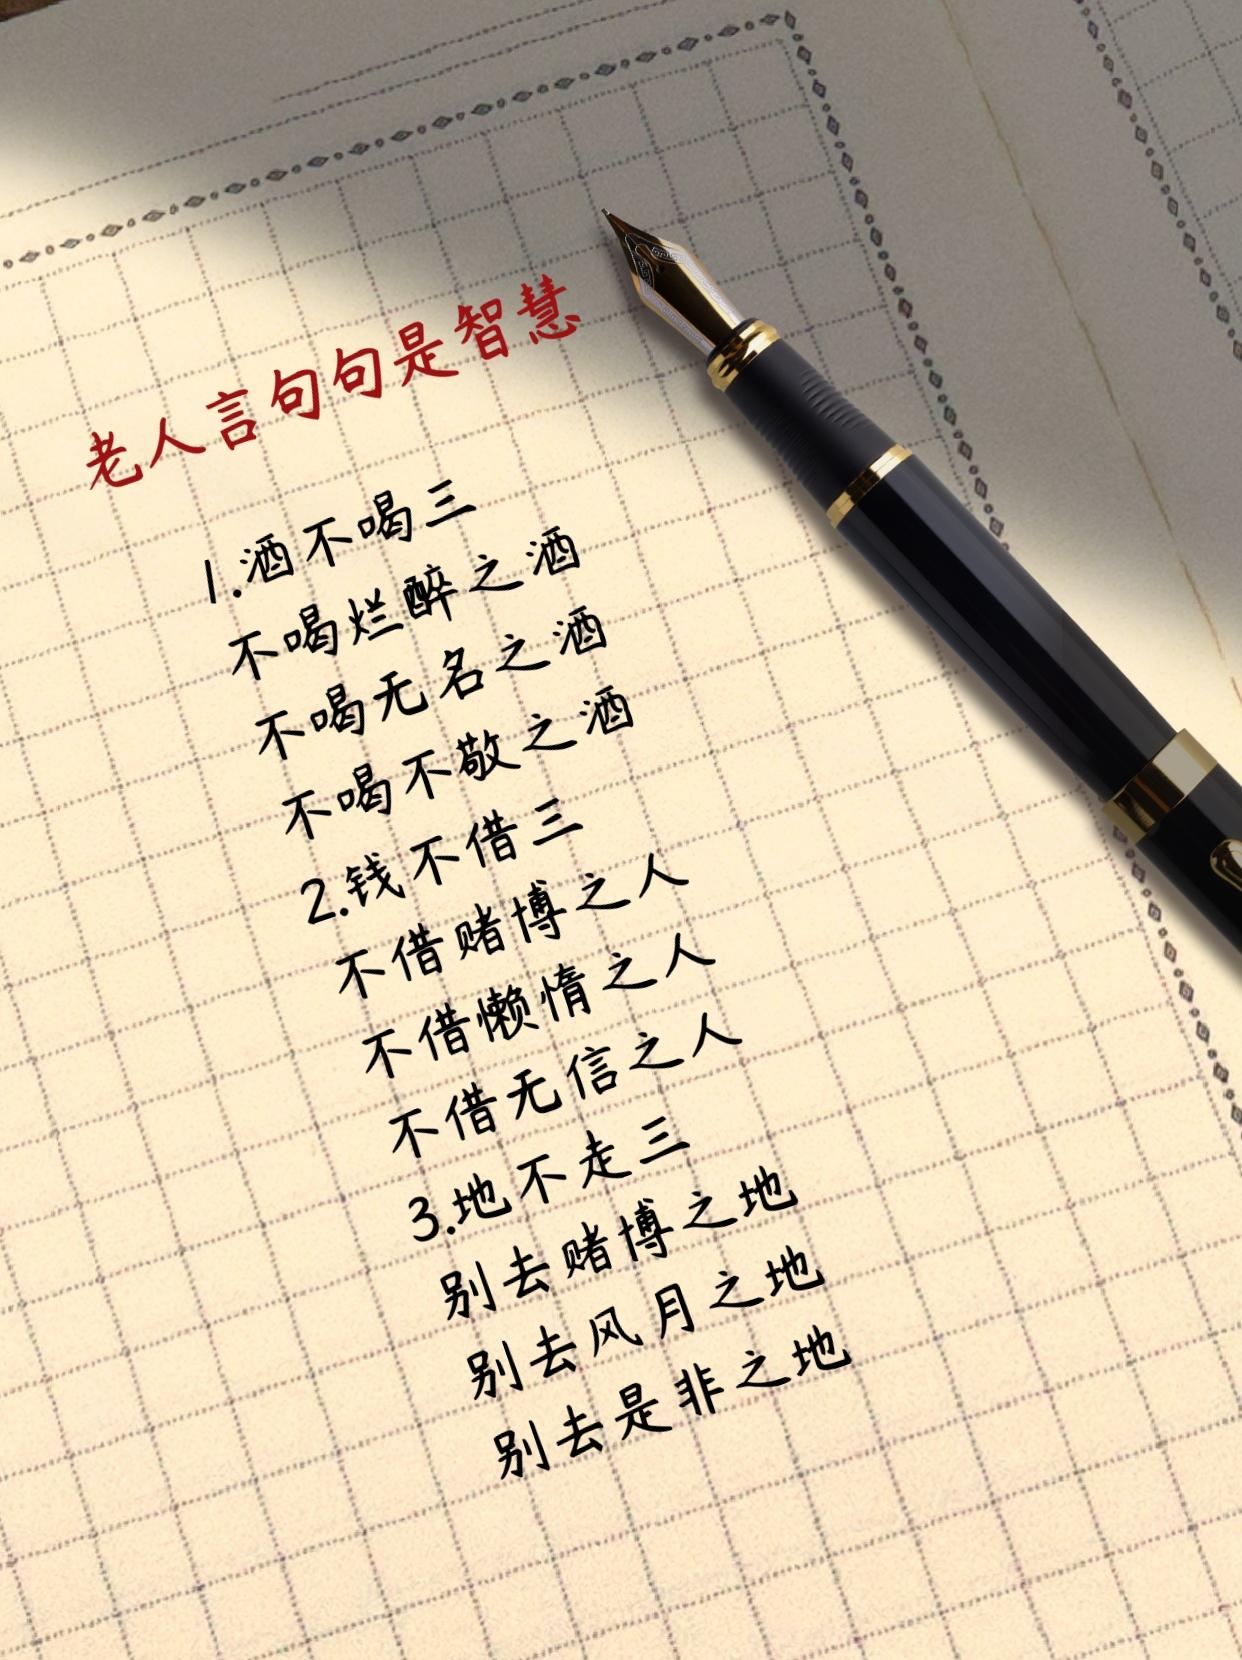 老人言句句是智慧
1.酒不喝三
不喝烂醉之酒
不喝无名之酒
不喝不敬之酒
2.钱不借三
不借赌博之人
不借懒惰之人
不借无信之人
3.地不走三
别去赌博之地
别去风月之地
别去是非之地